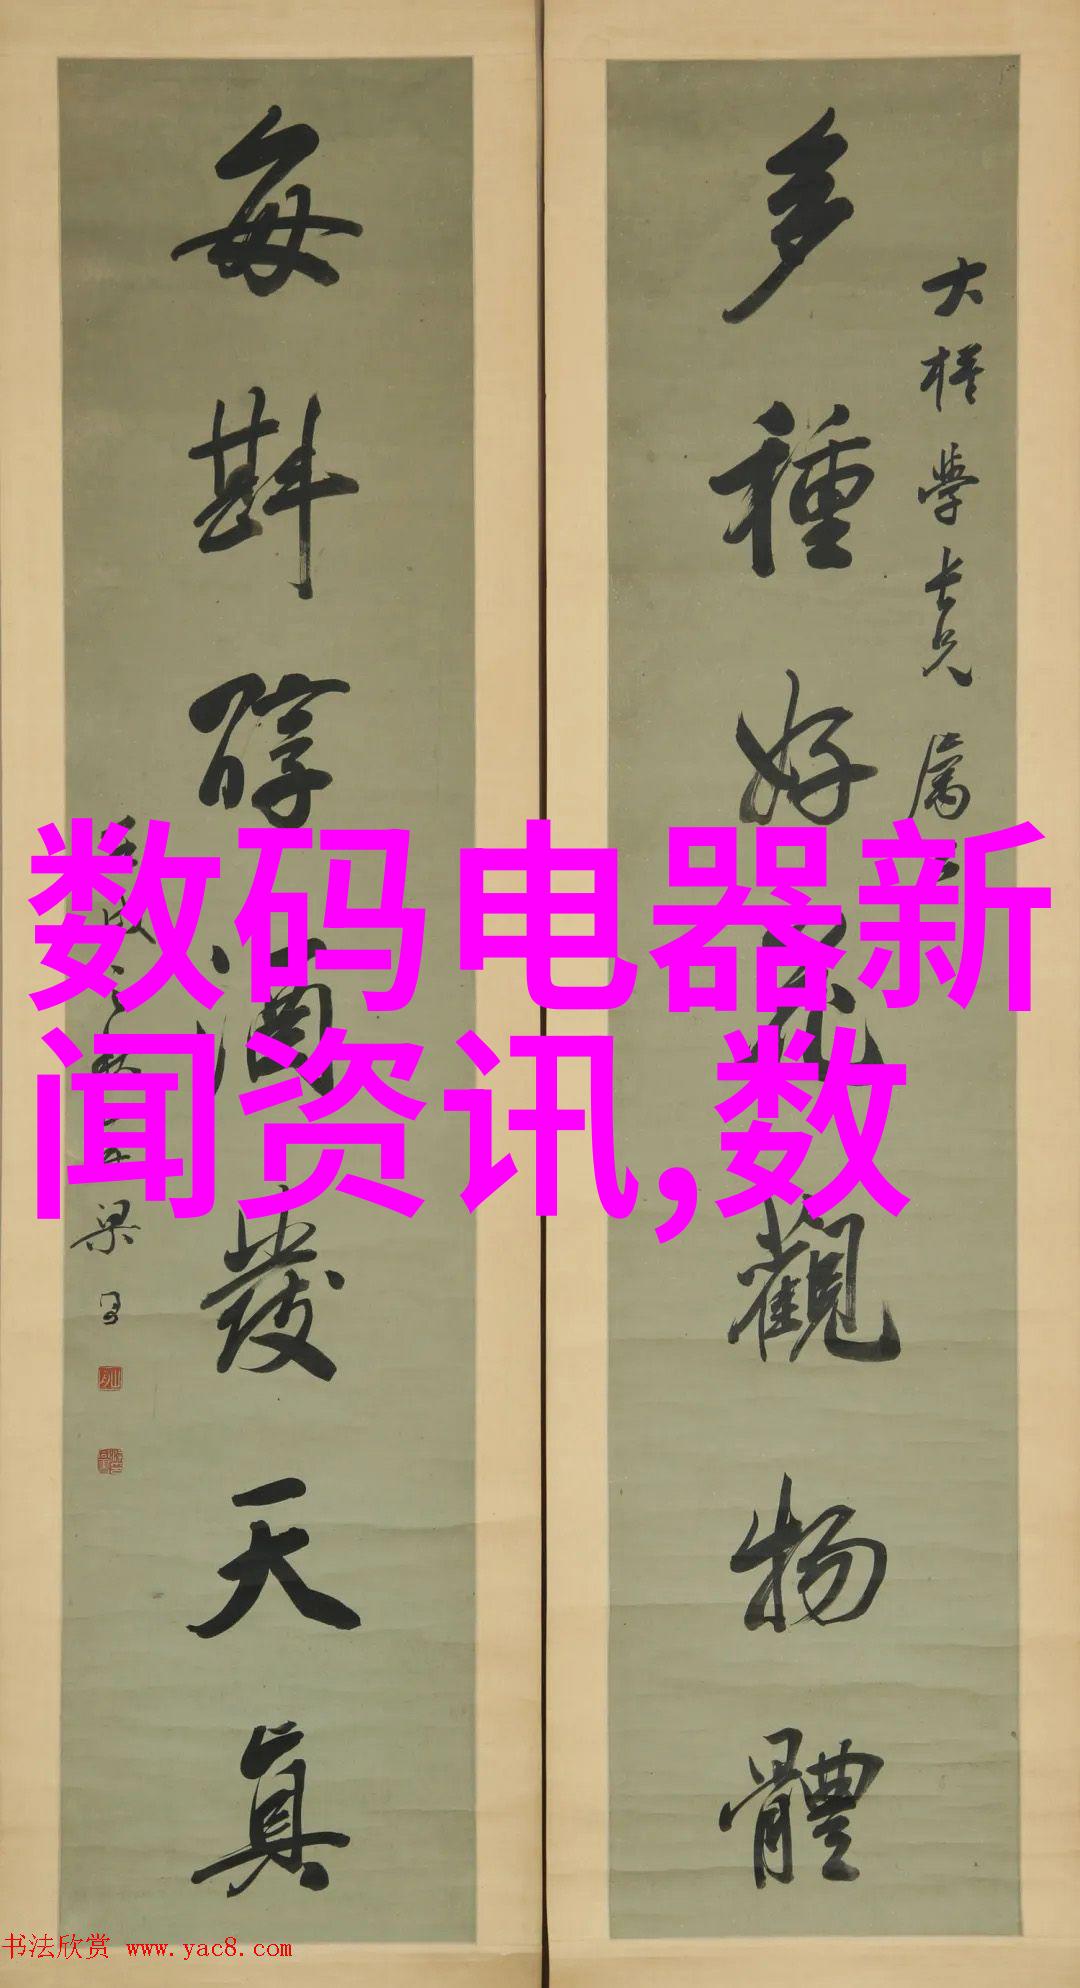 多種好花觀物體
大樁學長兄屬
每斟醇酒發天真
梁
数码电器新
闻资讯,数
书法欣赏 www.yac8.com